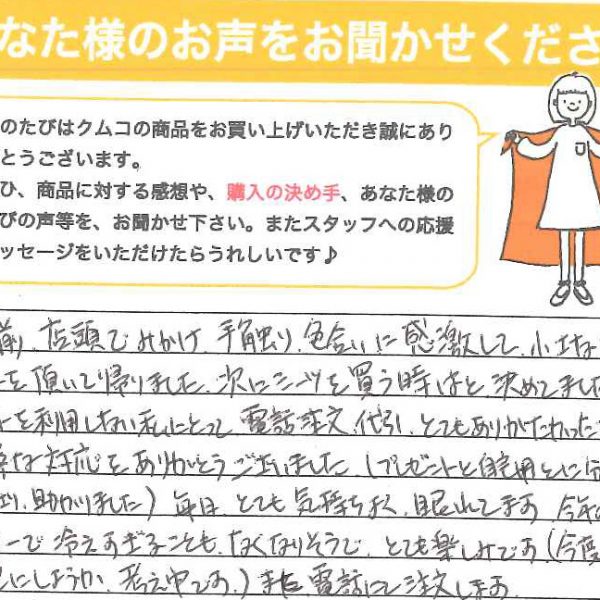 なた様のお声をお聞かせくださ
のたびはクムコの商品をお買い上げいただき誠にあり
とうございます。
ひ、商品に対する感想や、購入の決め手、あなた様の
びの声等を、お聞かせ下さい。またスタッフへの応援
ッセージをいただけたらうれしいです♪
前、店頭でみかけ、手触り、色合いに感激して、小さな
を頂いて帰りました。次にシーツを買う時はと、決めてました
を利用しない私にとって、電話注文、代引、とてもありがたかった
な対応をありがとうございました (プレゼントと自宅用とに
り、助かりました) 毎日、とても気持ちよく、眠れてます
ーで冷えすぎることも、なくなりそうで、とても楽しみです (今度
にしようか、考え中です。) また電話にて注文します。